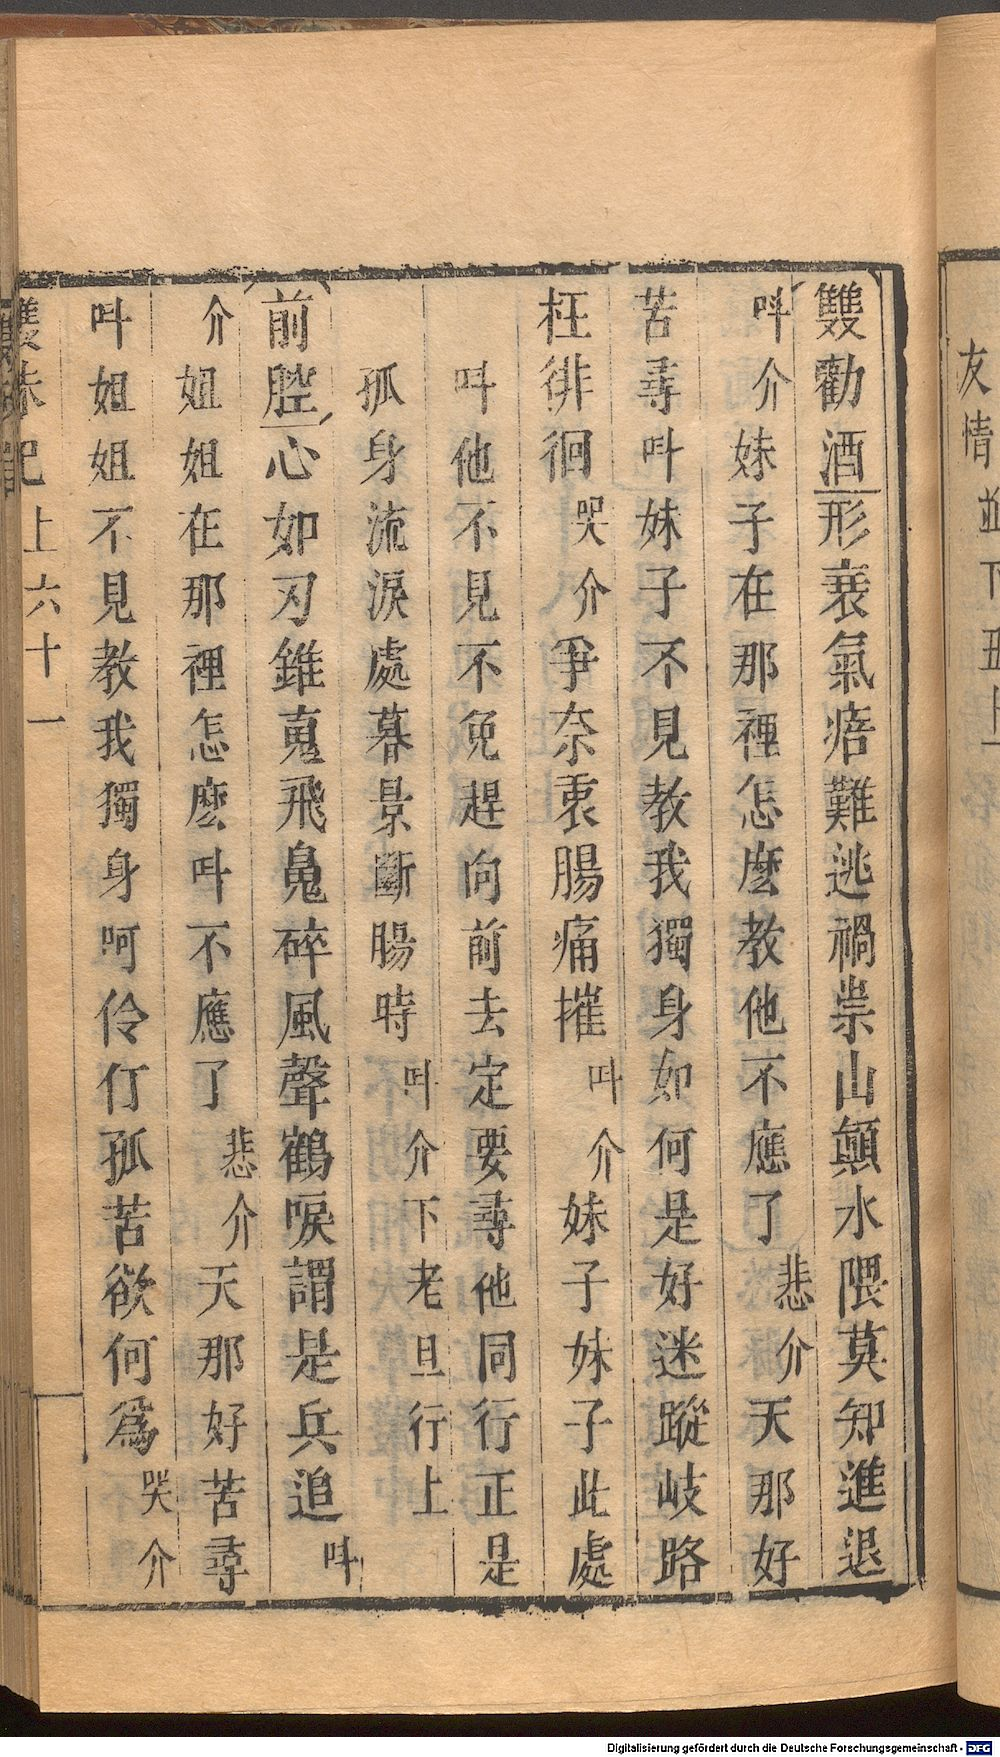 友情並下
雙勸酒形衰氣痞難逃禍祟山顛水隈莫知進退
呌介妹子在那裡怎麽教他不應了悲介天那好
苦尋呌妹子不見教我獨身如何是好迷蹤岐路
枉徘徊哭介爭奈衷腸痛摧呌介妹子妹子此處
呌他不見不免趕向前去定要尋他同行正是
孤身流淚處暮景斷腸時呌介下老旦行上
前腔心如刃錐䰟飛鬼碎風聲鶴唳謂是兵追呌
介姐姐在那裡怎麽呌不應了悲介天那好苦尋
呌姐姐不見教我獨身呵伶仃孤苦欲何爲哭介
雙珠記 上 六十一
Digitalisierung gefördert durch die Deutsche Forschungsgemeinschaft - DFG